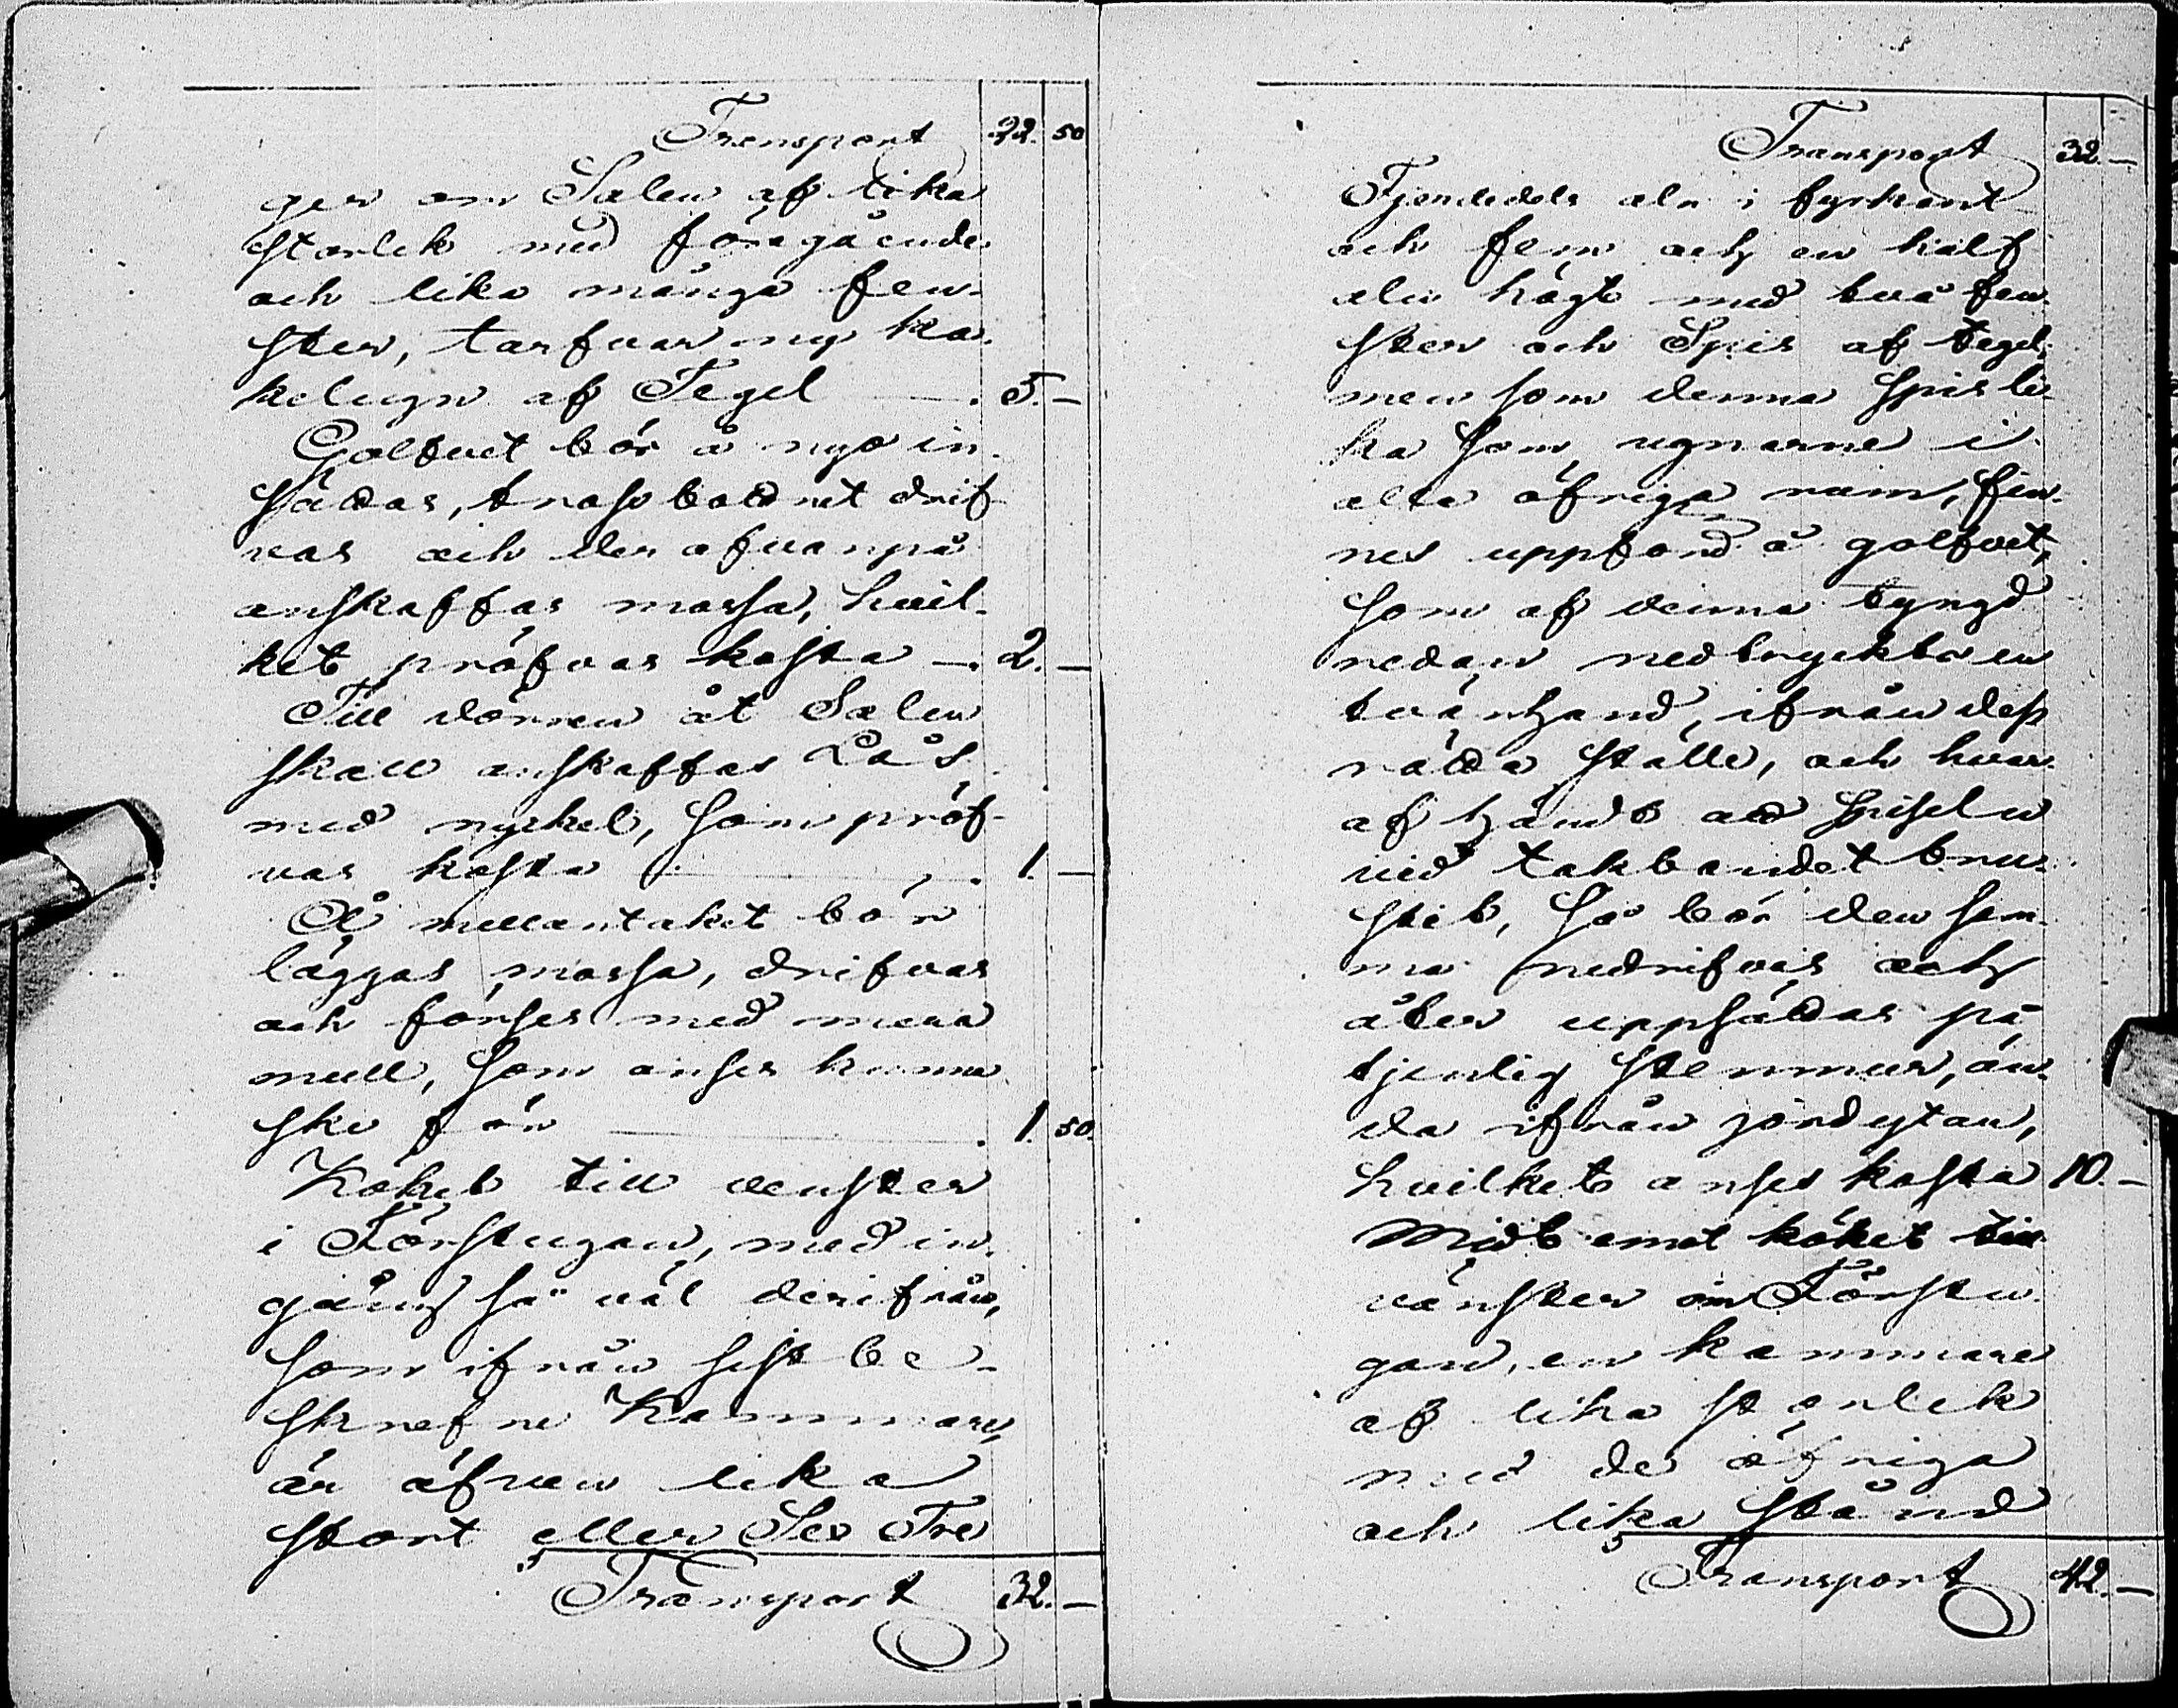 Transport 22. 50
ger om Salen af lika
storlek med föregående
och lika många fen-
ster, tarfvar ny ka-
kelugn af Tegel 5. —
Golfvet bör å nyo in-
sättas, trossbottnet drif-
vas och der ofvanpå
anskaffas mossa, hvil-
ket pröfvas kosta — 2. —
Till dörren åt Salen
skall anskaffas Lås
med nyckel, som pröf-
vas kosta 1. —
Å mellantaket bör
läggas mossa, drifvas
och förses med mera
mull, som anses kunna
ske för 1. 50.
Köket till venster
i Förstugan, med in-
gång så väl derifrån,
som ifrån sist be-
skrefne Kammare,
är äfven lika
stort eller Sex Tre
Transport 32. —
Transport 32. —
Fjerdedels aln i fyrkant
och fem och en half
aln högt med två fen-
ster och Spis af tegel,
men som denna spis li-
ka som ugnarne i
alla öfriga rum, fin-
nes uppförd å golfvet,
som af denna tyngd
redan nedtryckt en
tvärhand, ifrån dess
rätta ställe, och hvar-
af händt att spiseln
vid takbandet bru-
stit, så bör den sam-
ma nedrifvas och
åter uppsättas på
tjenlig stenmur, än-
da ifrån jordytan,
hvilket anses kosta 10. —
Midt emot köket till
vänster om Förstu-
gan, en kammare
af lika storlek
med de öfriga
och lika stånd
Transport 42. —